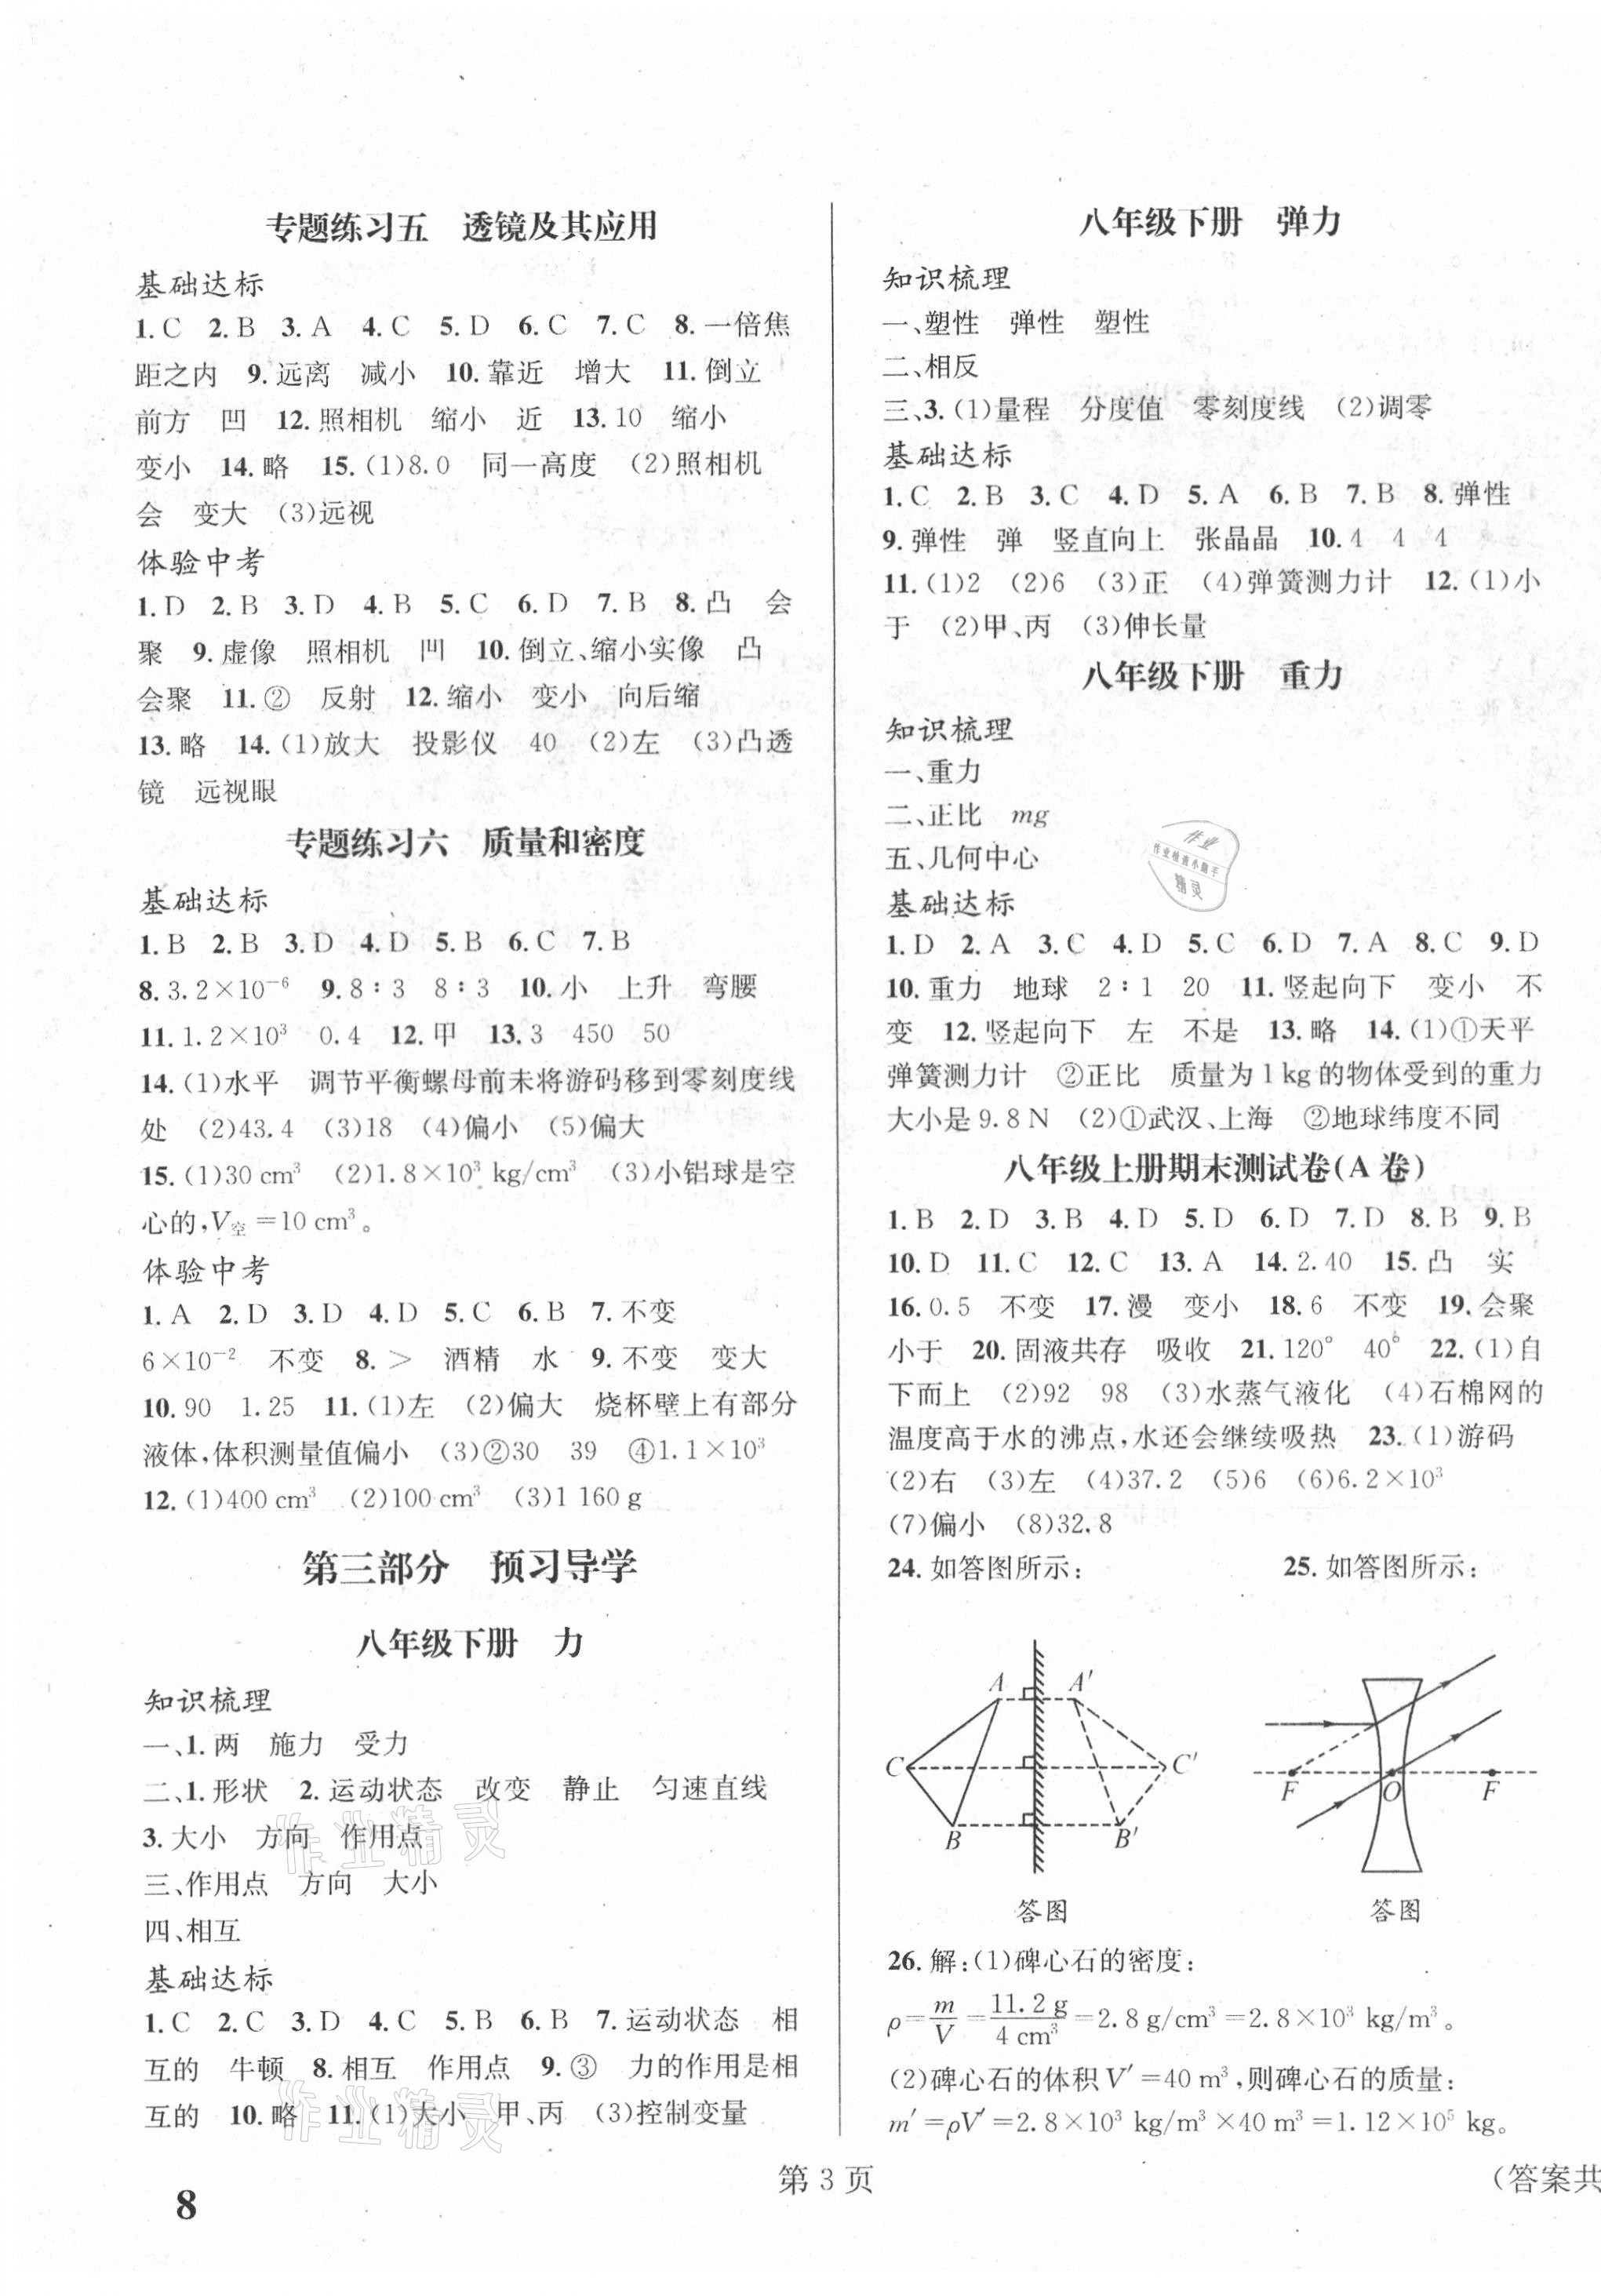 专题练习五　透镜及其应用
基础达标
1.C 2.B 3.A 4.C 5.D 6.C 7.C 8.一倍焦
距之内 9.远离 减小 10.靠近 增大 11.倒立
前方 凹 12.照相机 缩小 近 13.10 缩小
变小 14.略 15.(1)8.0 同一高度 (2)照相机
会 变大 (3)远视
体验中考
1.D 2.B 3.D 4.B 5.C 6.D 7.B 8.凸 会
聚 9.虚像 照相机 凹 10.倒立、缩小实像 凸
会聚 11.② 反射 12.缩小 变小 向后缩
13.略 14.(1)放大 投影仪 40 (2)左 (3)凸透
镜 远视眼
专题练习六　质量和密度
基础达标
1.B 2.B 3.D 4.D 5.B 6.C 7.B
8.3.2×10⁻⁶ 9.8∶3 8∶3 10.小 上升 弯腰
11.1.2×10³ 0.4 12.甲 13.3 450 50
14.(1)水平 调节平衡螺母前未将游码移到零刻度线
处 (2)43.4 (3)18 (4)偏小 (5)偏大
15.(1)30 cm³ (2)1.8×10³ kg/cm³ (3)小铝球是空
心的,V空=10 cm³。
体验中考
1.A 2.D 3.D 4.D 5.C 6.B 7.不变
6×10⁻² 不变 8.> 酒精 水 9.不变 变大
10.90 1.25 11.(1)左 (2)偏大 烧杯壁上有部分
液体,体积测量值偏小 (3)②30 39 ④1.1×10³
12.(1)400 cm³ (2)100 cm³ (3)1 160 g
第三部分　预习导学
八年级下册　力
知识梳理
一、1.两 施力 受力
二、1.形状 2.运动状态 改变 静止 匀速直线
3.大小 方向 作用点
三、作用点 方向 大小
四、相互
基础达标
1.C 2.C 3.D 4.C 5.B 6.B 7.运动状态 相
互的 牛顿 8.相互 作用点 9.③ 力的作用是相
互的 10.略 11.(1)大小 甲、丙 (3)控制变量
八年级下册　弹力
知识梳理
一、塑性 弹性 塑性
二、相反
三、3.(1)量程 分度值 零刻度线 (2)调零
基础达标
1.C 2.B 3.C 4.D 5.A 6.B 7.B 8.弹性
9.弹性 弹 竖直向上 张晶晶 10.4 4 4
11.(1)2 (2)6 (3)正 (4)弹簧测力计 12.(1)小
于 (2)甲、丙 (3)伸长量
八年级下册　重力
知识梳理
一、重力
二、正比 mg
五、几何中心
作业
作业检查小助手
精灵
基础达标
1.D 2.A 3.C 4.D 5.C 6.D 7.A 8.C 9.D
10.重力 地球 2∶1 20 11.竖起向下 变小 不
变 12.竖起向下 左 不是 13.略 14.(1)①天平
弹簧测力计 ②正比 质量为1 kg的物体受到的重力
大小是9.8 N (2)①武汉、上海 ②地球纬度不同
八年级上册期末测试卷(A卷)
1.B 2.D 3.B 4.D 5.D 6.D 7.D 8.B 9.B
10.D 11.C 12.C 13.A 14.2.40 15.凸 实
16.0.5 不变 17.漫 变小 18.6 不变 19.会聚
小于 20.固液共存 吸收 21.120° 40° 22.(1)自
下而上 (2)92 98 (3)水蒸气液化 (4)石棉网的
温度高于水的沸点,水还会继续吸热 23.(1)游码
(2)右 (3)左 (4)37.2 (5)6 (6)6.2×10³
(7)偏小 (8)32.8
24.如答图所示: 25.如答图所示:
A A′
C C′
B B′
F O F
答图 答图
26.解:(1)碑心石的密度:
ρ=m/V=11.2 g/4 cm³=2.8 g/cm³=2.8×10³ kg/m³。
(2)碑心石的体积V′=40 m³,则碑心石的质量:
m′=ρV′=2.8×10³ kg/m³×40 m³=1.12×10⁵ kg。
作业精灵
作业精灵
第 3 页
(答案共
8